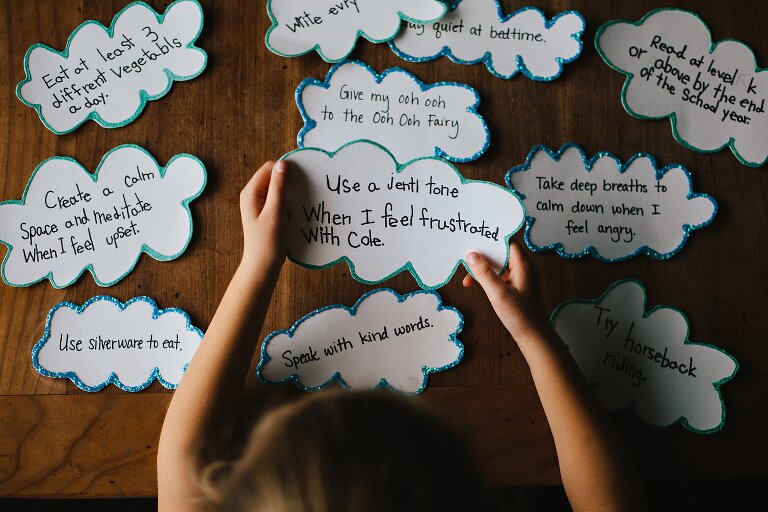 Eat at least 3
diffrent vegetables
a day.
Write evry
quiet at bedtime.
Read at level K
or above by the end
of the school year.
Give my ooh ooh
to the Ooh Ooh Fairy
Create a calm
space and meditate
When I feel upset.
Use a jentl tone
When I feel frustrated
With Cole.
Take deep breaths to
calm down when I
feel angry.
Use silverware to eat.
Speak with kind words.
Try horseback
riding.